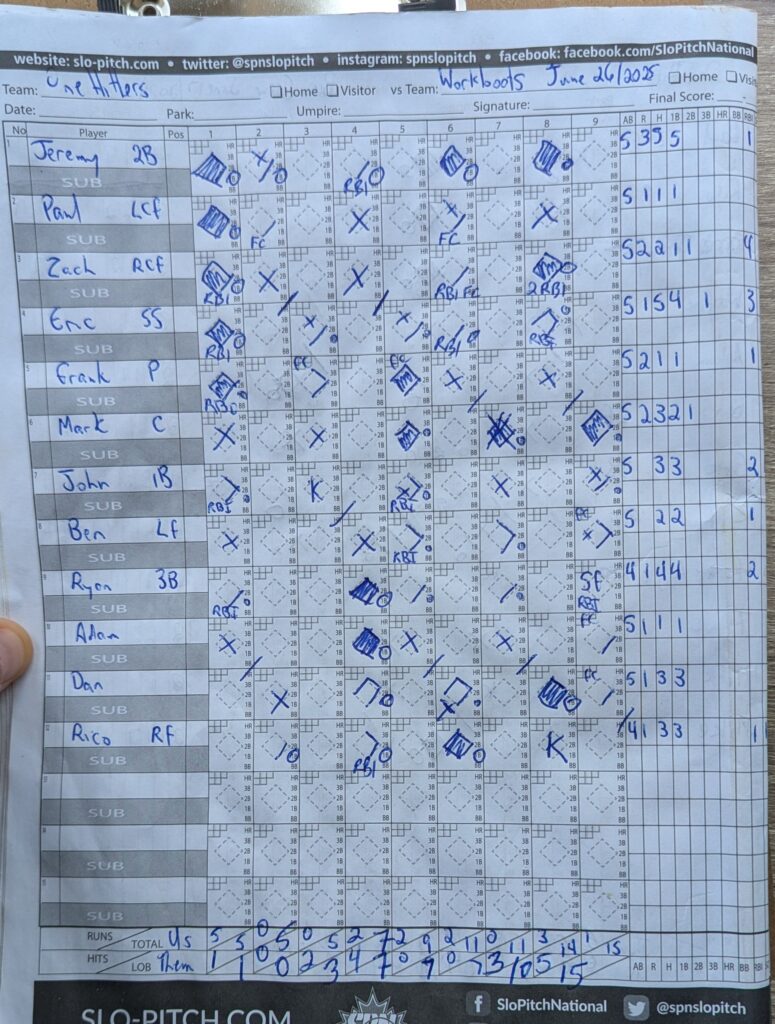 website: slo-pitch.com • twitter: @spnslopitch • instagram: spnslopitch • facebook: facebook.com/SloPitchNational
Team: One Hitters Home Visitor vs Team: Workboots June 26/2025 Home
Date: Park: Umpire: Signature: Final Score:
No Player Pos 1 2 3 4 5 6 7 8 9 AB R H 1B 2B 3B HR BB RBI
1 Jeremy 2B RBI 5 3 5 5 1
SUB
2 Paul LCF FC FC 5 1 1 1
SUB
3 Zach RCF RBI RBI FC 2RBI 5 2 2 1 1 4
SUB
4 Eric SS RBI RBI RBI 5 1 5 4 1 3
SUB
5 Frank P FC FC 5 2 1 1 1
SUB
6 Mark C 5 2 3 2 1
SUB
7 John 1B RBI K RBI 5 3 3 2
SUB
8 Ben LF RBI FC 5 2 2 1
SUB
9 Ryan 3B RBI SF RBI 4 1 4 4 2
SUB
Adam FC 5 1 1 1
SUB
Dan FC 5 1 3 3
SUB
Rico RF RBI K 4 1 3 3 1
SUB
SUB
SUB
SUB
RUNS TOTAL Us 5 5 0 5 0 5 2 7 2 9 2 11 0 11 3 14 1 15
HITS LOB Them 1 1 0 0 2 3 4 7 0 7 0 7 3 10 5 15 AB R H 1B 2B 3B HR BB RBI
SLO-PITCH.COM SloPitchNational @spnslopitch